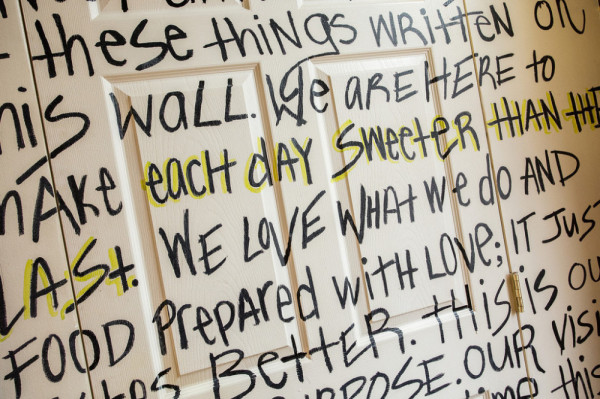 these things written on
this wall. We are here to
make each day sweeter than the
last. We love what we do and
food prepared with love; it just
tastes better. This is our
purpose. Our visi
time this